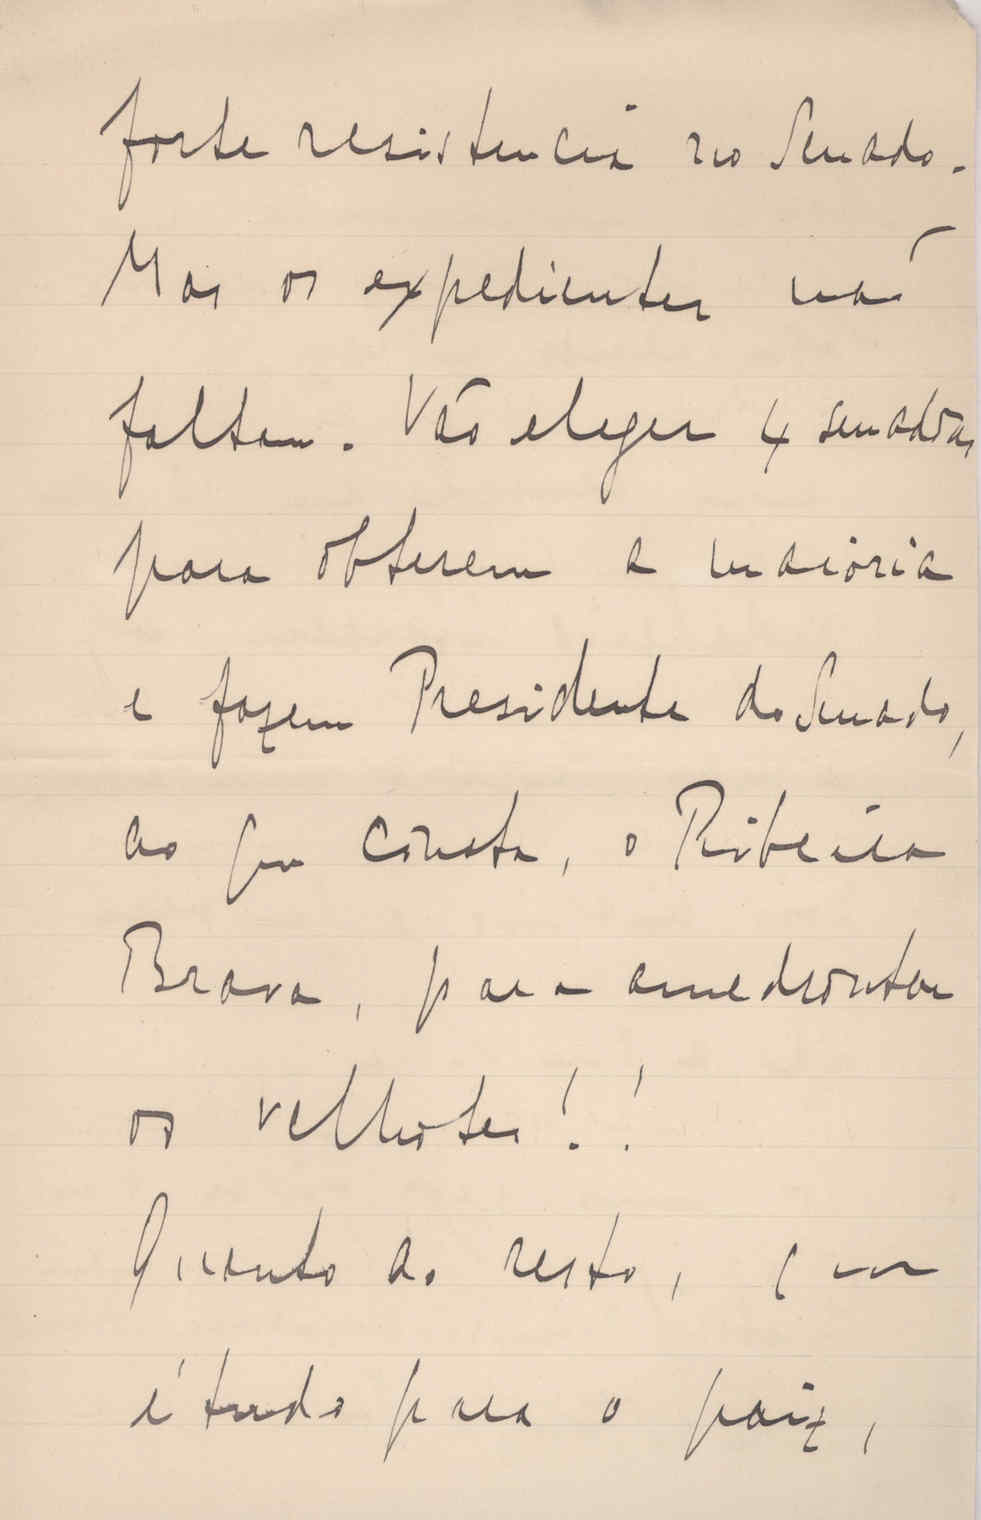 forte resistencia no Senado.
Mas os expedientes não
faltam. Vão eleger 4 senadores
para obterem a maioria
e fazem Presidente do Senado,
ao que consta, o Ribeira
Brava, para amedrontar
os velhotes!!
Quanto ao resto, que
é tudo para o paiz,